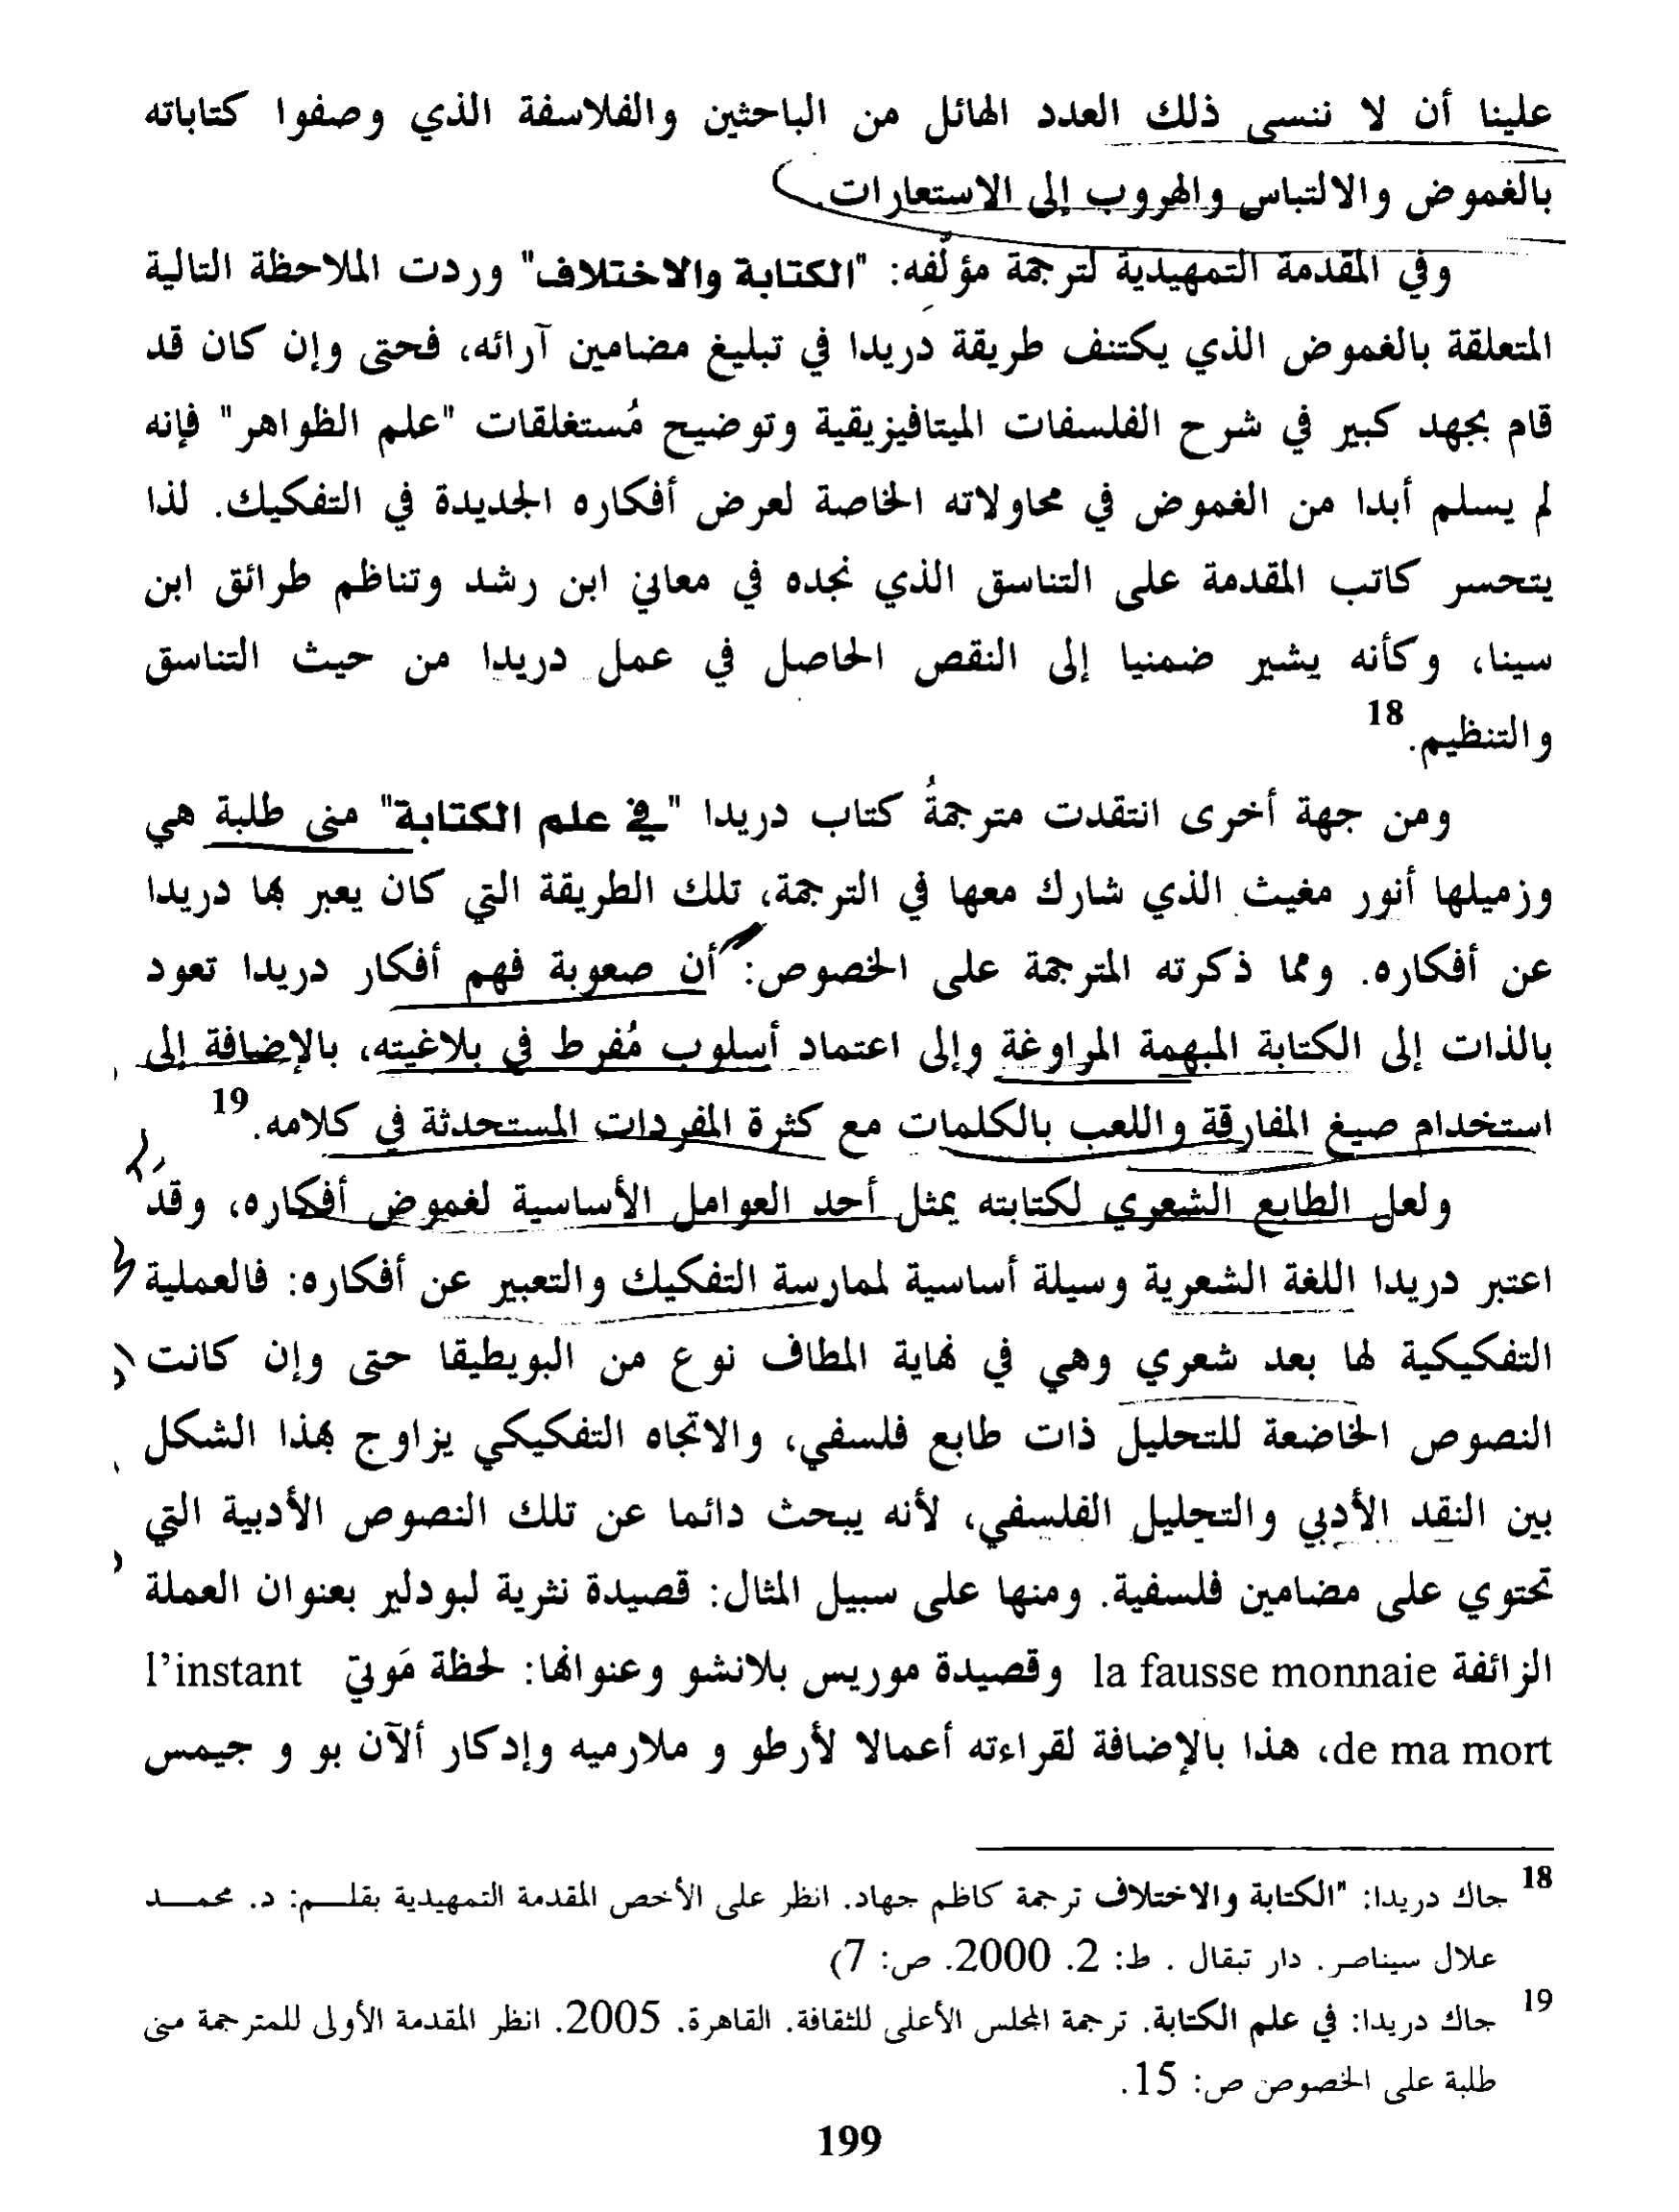 علينا أن لا ننسى ذلك العدد الهائل من الباحثين والفلاسفة الذي وصفوا كتاباته
بالغموض والالتباس والهروب إلى الاستعارات.
وفي المقدمة التمهيدية لترجمة مؤلّفه: "الكتابة والاختلاف" وردت الملاحظة التالية
المتعلقة بالغموض الذي يكتنف طريقة دريدا في تبليغ مضامين آرائه، فحتى وإن كان قد
قام بجهد كبير في شرح الفلسفات الميتافيزيقية وتوضيح مُستغلقات "علم الظواهر" فإنه
لم يسلم أبدا من الغموض في محاولاته الخاصة لعرض أفكاره الجديدة في التفكيك. لذا
يتحسر كاتب المقدمة على التناسق الذي نجده في معاني ابن رشد وتناظم طرائق ابن
سينا، وكأنه يشير ضمنيا إلى النقص الحاصل في عمل دريدا من حيث التناسق
والتنظيم.18
ومن جهة أخرى انتقدت مترجمةُ كتاب دريدا "في علم الكتابة" منى طلبة هي
وزميلها أنور مغيث الذي شارك معها في الترجمة، تلك الطريقة التي كان يعبر بها دريدا
عن أفكاره. ومما ذكرته المترجمة على الخصوص: أن صعوبة فهم أفكار دريدا تعود
بالذات إلى الكتابة المبهمة المراوغة وإلى اعتماد أسلوب مُفرط في بلاغيته، بالإضافة إلى
استخدام صيغ المفارقة واللعب بالكلمات مع كثرة المفردات المستحدثة في كلامه.19
ولعل الطابع الشعري لكتابته يمثل أحد العوامل الأساسية لغموض أفكاره، وقد
اعتبر دريدا اللغة الشعرية وسيلة أساسية لممارسة التفكيك والتعبير عن أفكاره: فالعملية
التفكيكية لها بعد شعري وهي في نهاية المطاف نوع من البويطيقا حتى وإن كانت
النصوص الخاضعة للتحليل ذات طابع فلسفي، والاتجاه التفكيكي يزاوج بهذا الشكل
بين النقد الأدبي والتحليل الفلسفي، لأنه يبحث دائما عن تلك النصوص الأدبية التي
تحتوي على مضامين فلسفية. ومنها على سبيل المثال: قصيدة نثرية لبودلير بعنوان العملة
الزائفة la fausse monnaie وقصيدة موريس بلانشو وعنوانها: لحظة مَوتيِ l’instant
de ma mort، هذا بالإضافة لقراءته أعمالا لأرطو و ملارميه وإدكار ألآن بو و جيمس
18 جاك دريدا: "الكتابة والاختلاف ترجمة كاظم جهاد. انظر على الأخص المقدمة التمهيدية بقلـم: د. محمـد
علال سيناصر. دار تبقال . ط: 2. 2000. ص: 7)
19 جاك دريدا: في علم الكتابة. ترجمة المجلس الأعلى للثقافة. القاهرة. 2005. انظر المقدمة الأولى للمترجمة منى
طلبة على الخصوص ص: 15.
199